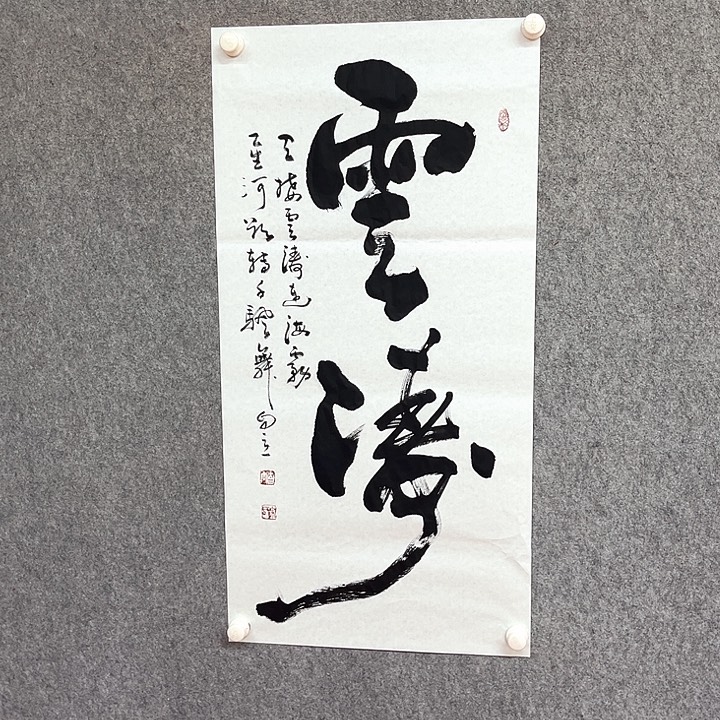 雲濤
天接雲濤連海霧
星河欲轉千帆舞